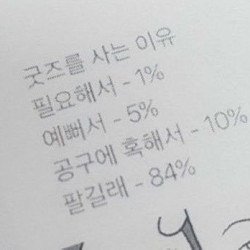 굿즈를 사는 이유
필요해서 - 1%
예뻐서 - 5%
공구에 혹해서 - 10%
팔길래 - 84%